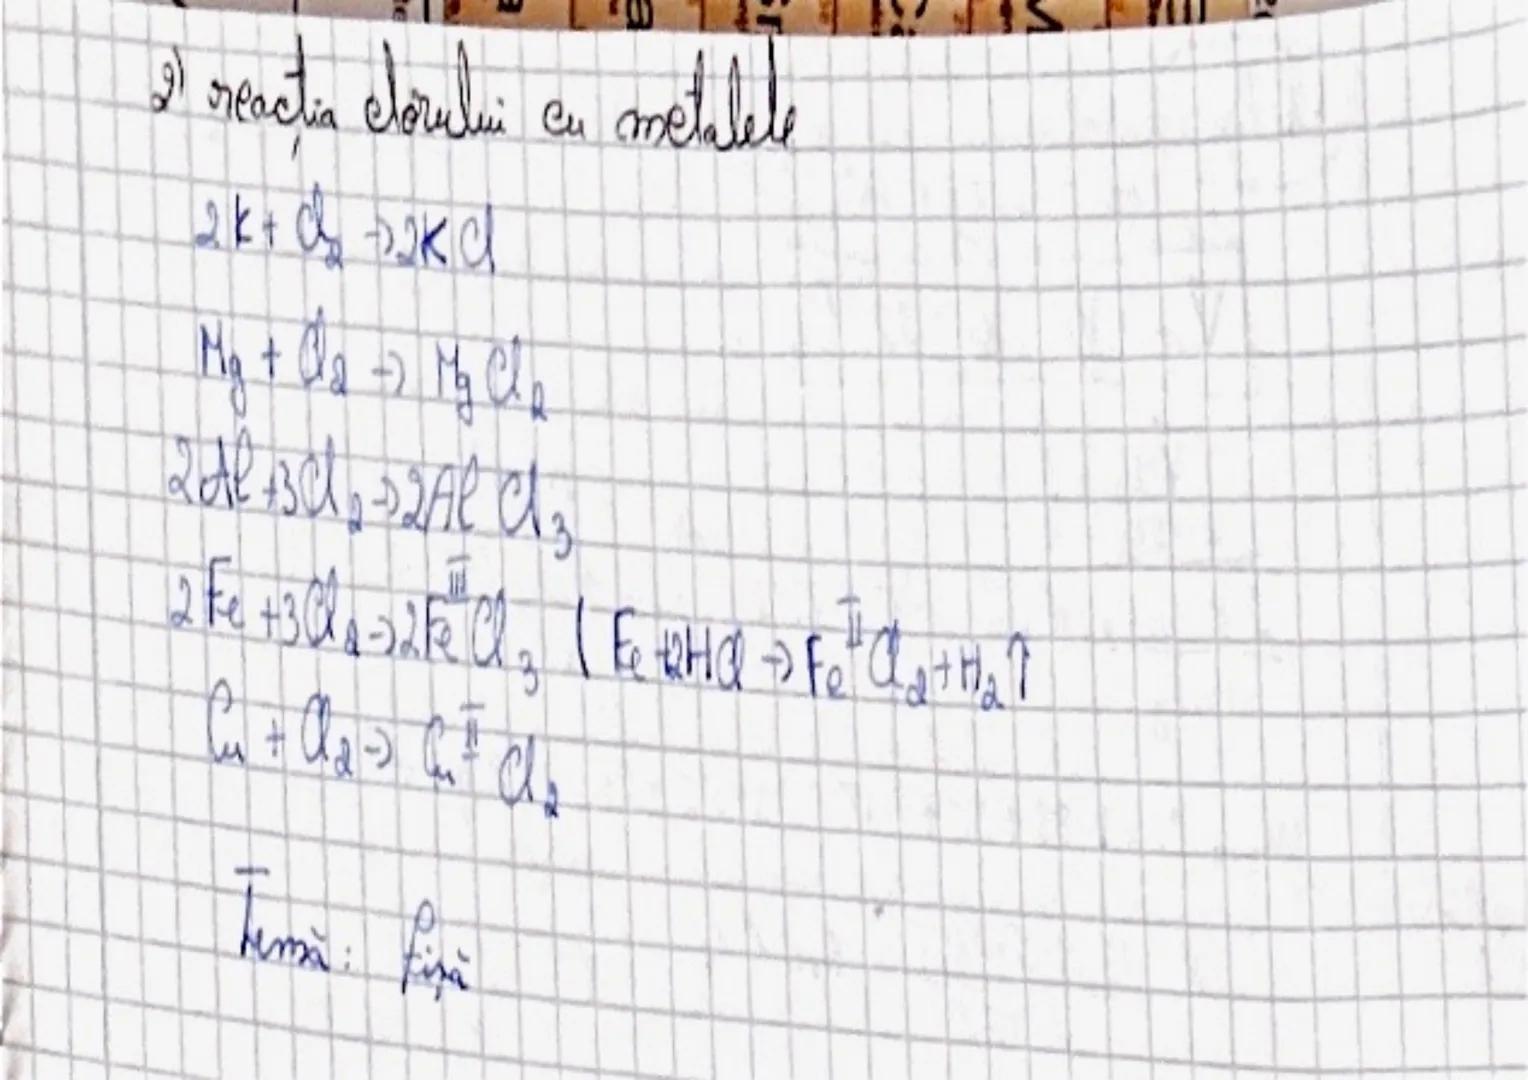 2) reacția clorului cu metalele
2K + Cl₂ → 2KCl
Mg + Cl₂ → MgCl₂
2Al + 3Cl₂ → 2AlCl₃
2Fe + 3Cl₂ → 2Feᴵᴵᴵ Cl₃ ( Fe + 2HCl → Feᴵᴵ Cl₂ + H₂↑
Cu + Cl₂ → Cuᴵᴵ Cl₂
Temă: fișă